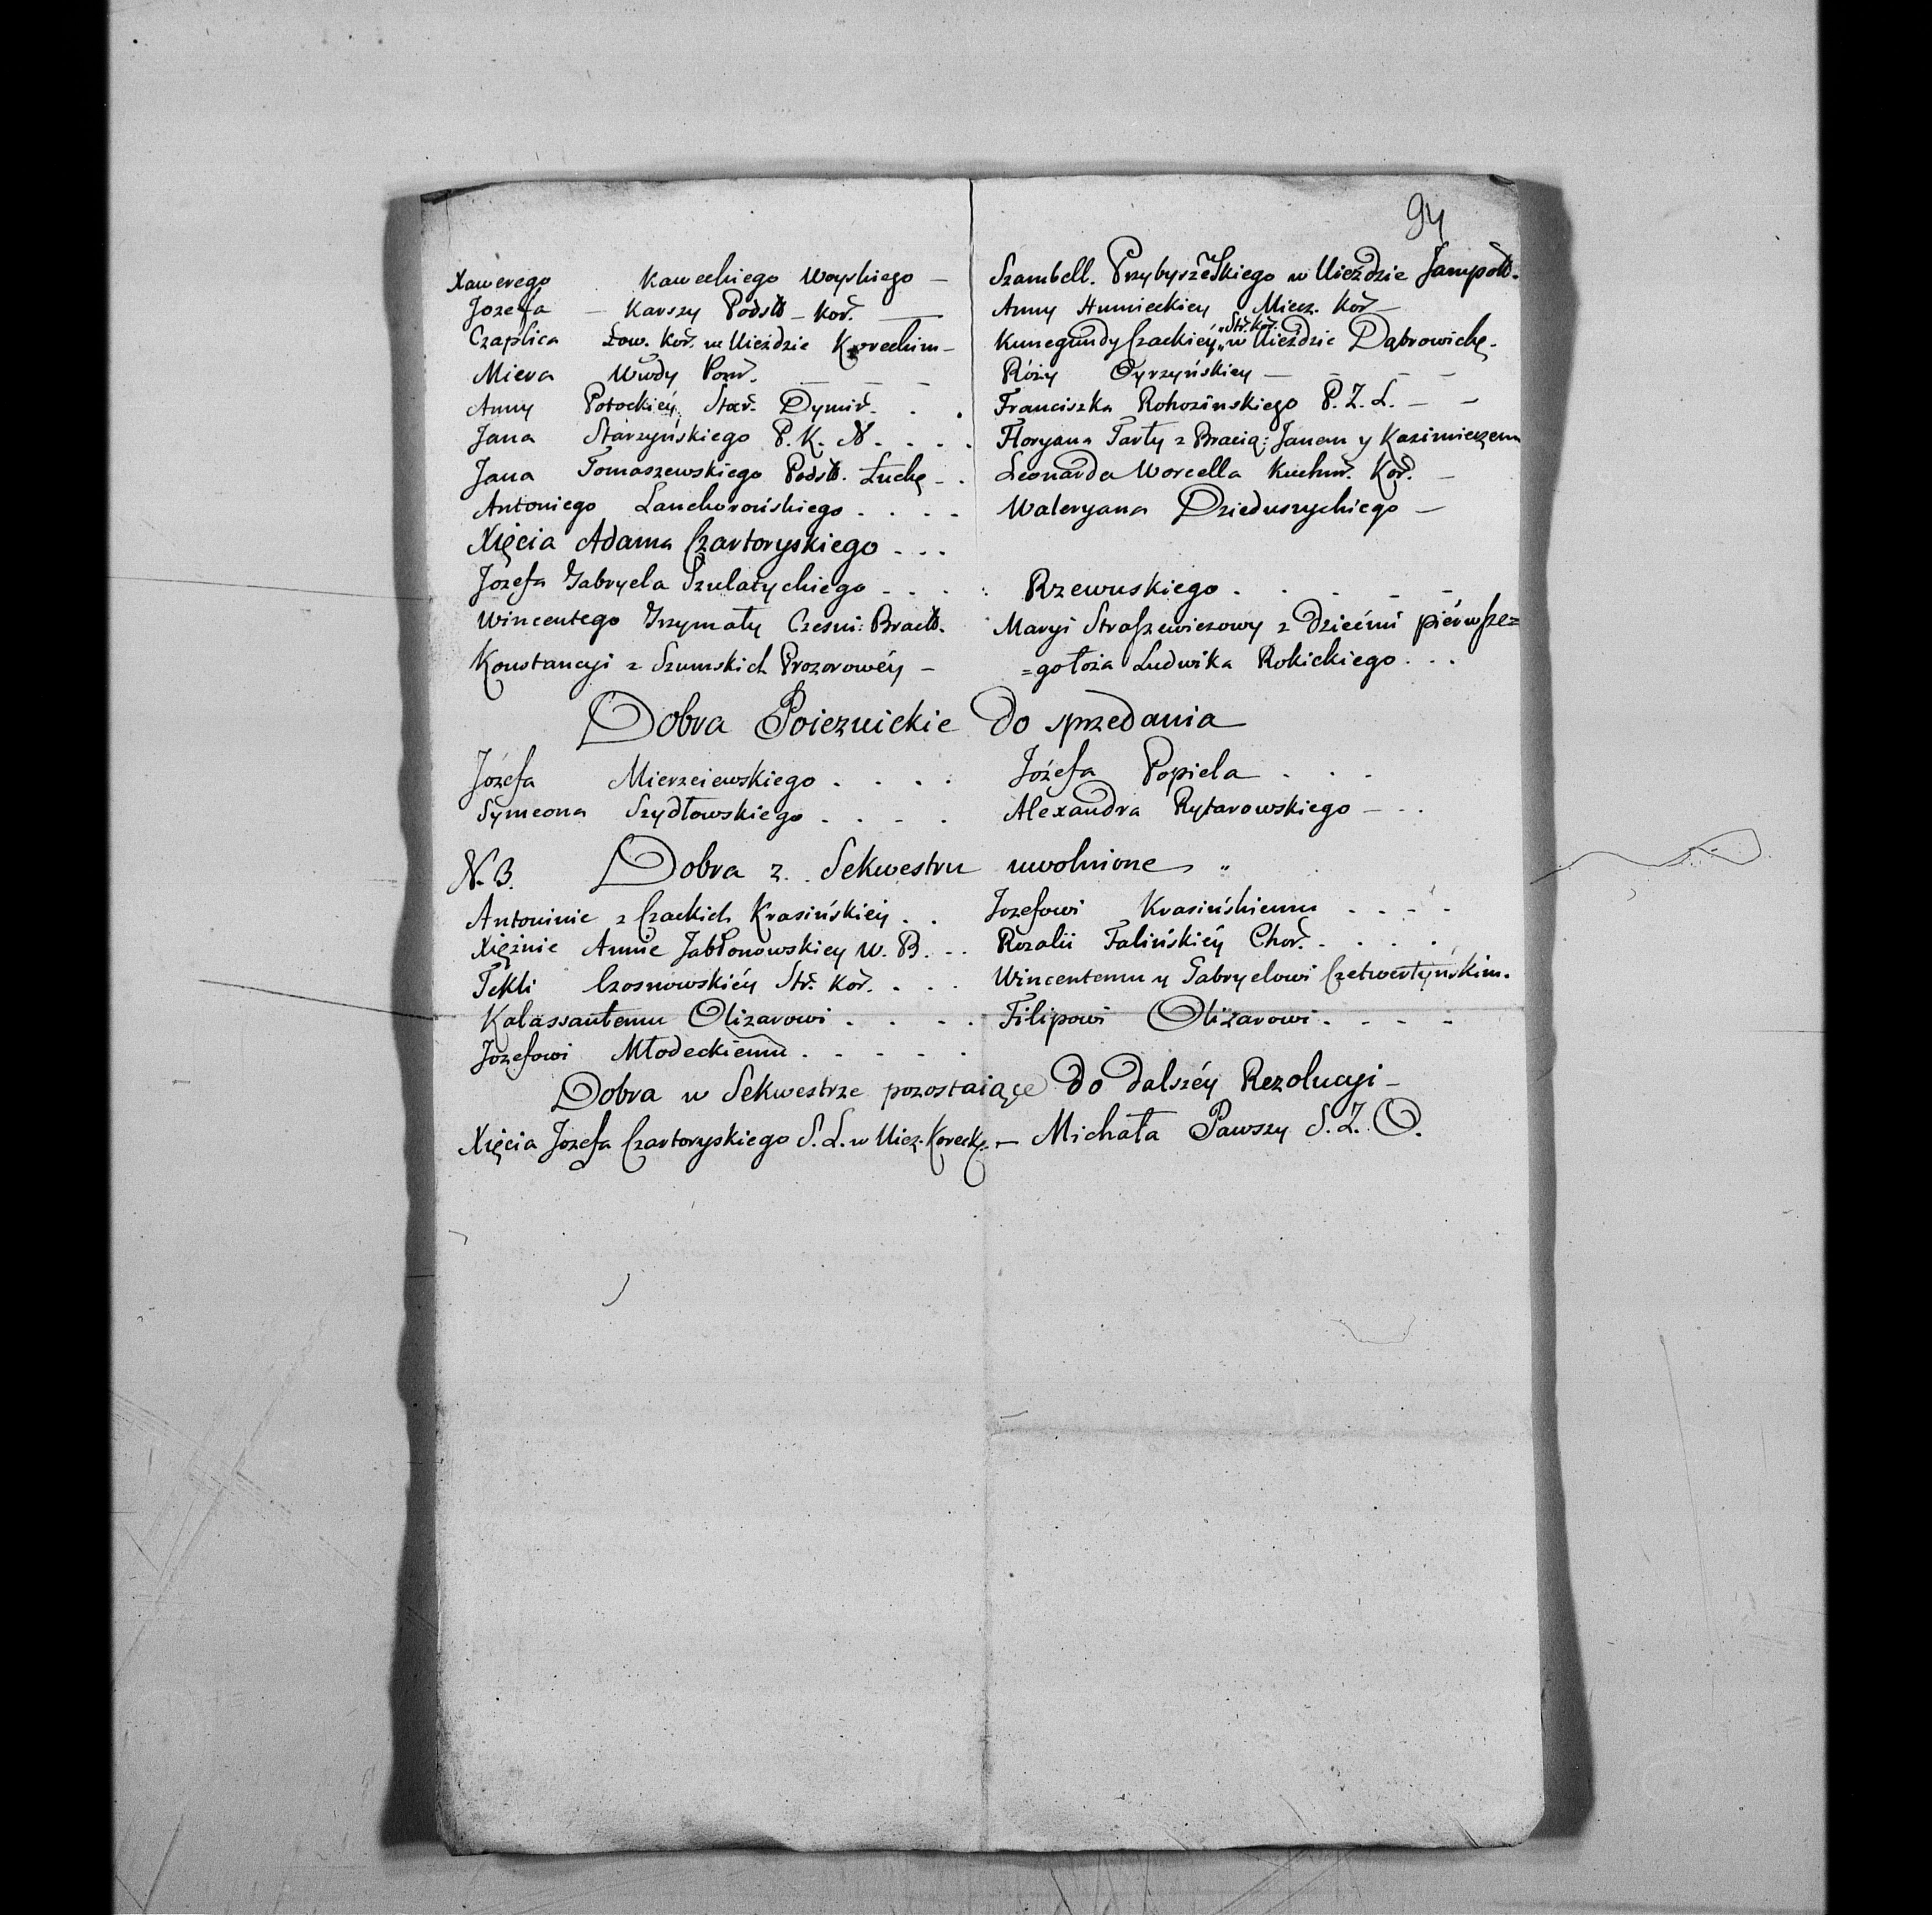 94
Xawerego Kaweckiego Woyskiego —
Jozefa — Karszy Podsto — Kor. —
Czaplica Łow. Kor. w Uieździe Koreckim —
Miera Wwdy — — —
Anny Potockiéy Star. Dymir. . .
Jana Starzyńskiego P. K. N. . . .
Jana Tomaszewskiego Podsto. Łuckę - .
Antoniego Lanckorońskiego . . . .
Xięcia Adama Czartoryskiego . . .
Józefa Gabryela Szulatyckiego . . .
Wincentego Grzymały Czesni: Bracło.
Konstancyi z Szumskich Prozorowéy —
Szambell. Przybyszewskiego w Uieździe Jampolo.
Anny Humieckiey Miecz. Kor —
Kunegundy Czackiéy „Str. Kor.„ w Uieździe Dąbrowickę.
Róży Oyrzyńskiey — — — —
Franciszka Rohozinskiego P. Z. Ł. — —
Floryana Tarły z Bracią: Janem y Kazimierzem
Leonarda Worcella Kuchm. Kor. —
Waleryana Dzieduszyckiego —
Rzewuskiego . . . — —
Maryi Straszewiczowy z Dziećmi piérwsze=
=go łoża Ludwika Rokickiego . . .
Dobra Poieznickie do sprzedania
Józefa Mierzeiewskiego . . . .
Symeona Szydłowskiego . . . .
Józefa Popiela . . .
Alexandra Rytarowskiego — . .
N. B. Dobra z Sekwestru uwolnione „
Antoninie z Czackich Krasińskiéy . .
Xiężnie Annie Jabłonowskiey W. B. . .
Tekli Czosnowskiéy Str. Kor. . . .
Kalassantemu Olizarowi . . . .
Jozefowi Młodeckiemu . . . . .
Jozefowi Krasińskiemu . . . .
Rozalii Falińskiéy Chor. . . . .
Wincentemu y Gabryelowi Czetwertyńskim.
Filipowi Olizarowi . . . .
Dobra w Sekwestrze pozostaiące do dalszéy Rezolucyi —
Xięcia Jozefa Czartoryskiego S. Ł. w Uiez. Korecke. — Michała Pawszy S. Z. O.